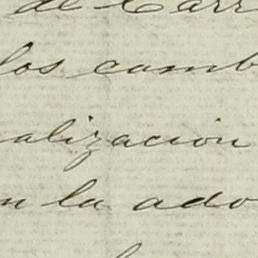 de Carr
los camb
alizacion
n la ado